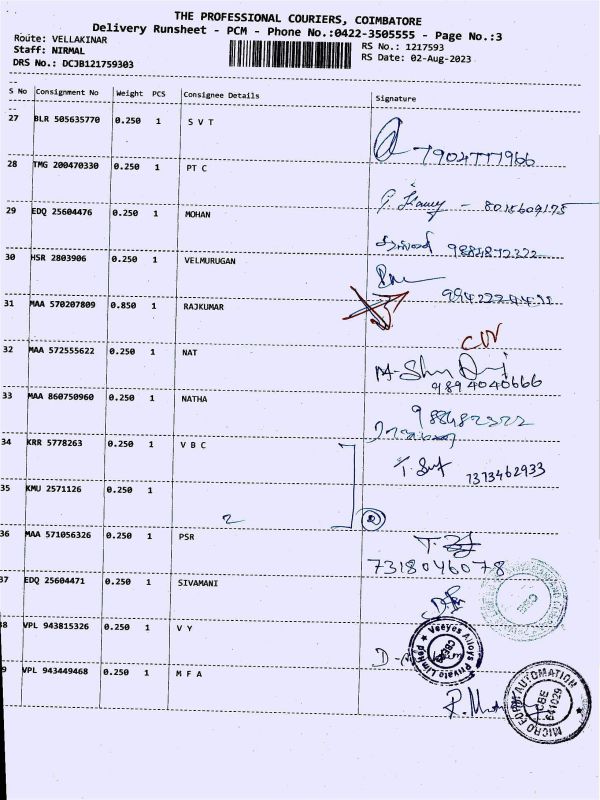 THE PROFESSIONAL COURIERS, COIMBATORE
Delivery Runsheet - PCM - Phone No.:0422-3505555 - Page No.:3
Route: VELLAKINAR
RS No.: 1217593
Staff: NIRMAL
RS Date: 02-Aug-2023
DRS No.: DCJB121759303
S No Consignment No Weight PCS Consignee Details Signature
27 BLR 505635770 0.250 1 S V T
7904777966
28 TMG 200470330 0.250 1 PT C
8015609175
29 EDQ 25604476 0.250 1 MOHAN
30 HSR 2803906 0.250 1 VELMURUGAN
31 MAA 570207809 0.850 1 RAJKUMAR
32 MAA 572555622 0.250 1 NAT
9894040666
33 MAA 860750960 0.250 1 NATHA
34 KRR 5778263 0.250 1 V B C
7373462933
35 KMU 2571126 0.250 1
2
36 MAA 571056326 0.250 1 PSR
7318046078
37 EDQ 25604471 0.250 1 SIVAMANI
38 VPL 943815326 0.250 1 V Y
Veeyes Alloys Private Limited
39 VPL 943449468 0.250 1 M F A
MICRO FORM AUTOMATION
CBE
641029